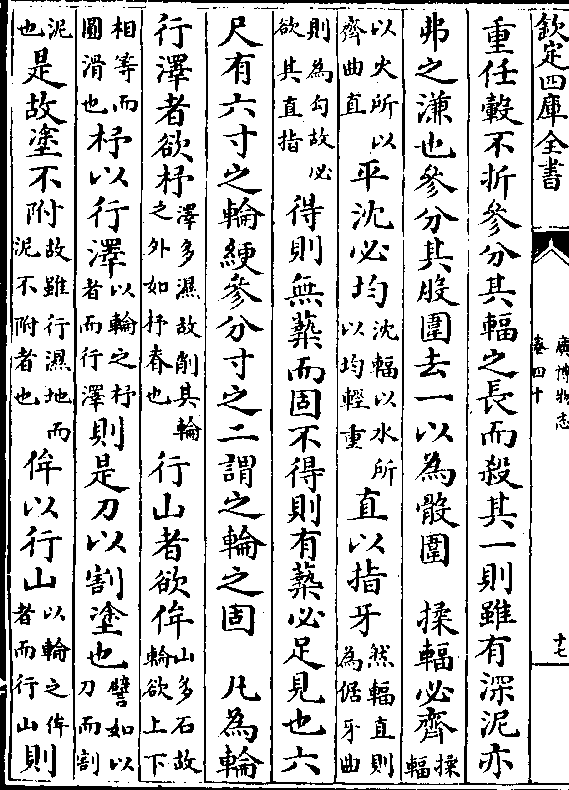 欽定四庫全書
廣博物志
卷四十
十七
重任轂不折參分其輻之長而殺其一則雖有深泥亦
弗之溓也參分其股圍去一以為骹圍　揉輻必齊揉輻
以火所以齊曲直平沈必均沈輻以水所以均輕重直以指牙然輻直則為倨牙曲
則為勾故必欲其直指得則無槷而固不得則有槷必足見也六
尺有六寸之輪綆參分寸之二謂之輪之固　凡為輪
行澤者欲杼澤多濕故削其輪之外如杼舂也行山者欲侔山多石故輪欲上下
相等而圓滑也杼以行澤以輪之杼者而行澤則是刀以割塗也譬如以刀而割
泥也是故塗不附故雖行濕地而泥不附者也侔以行山以輪之侔者而行山則